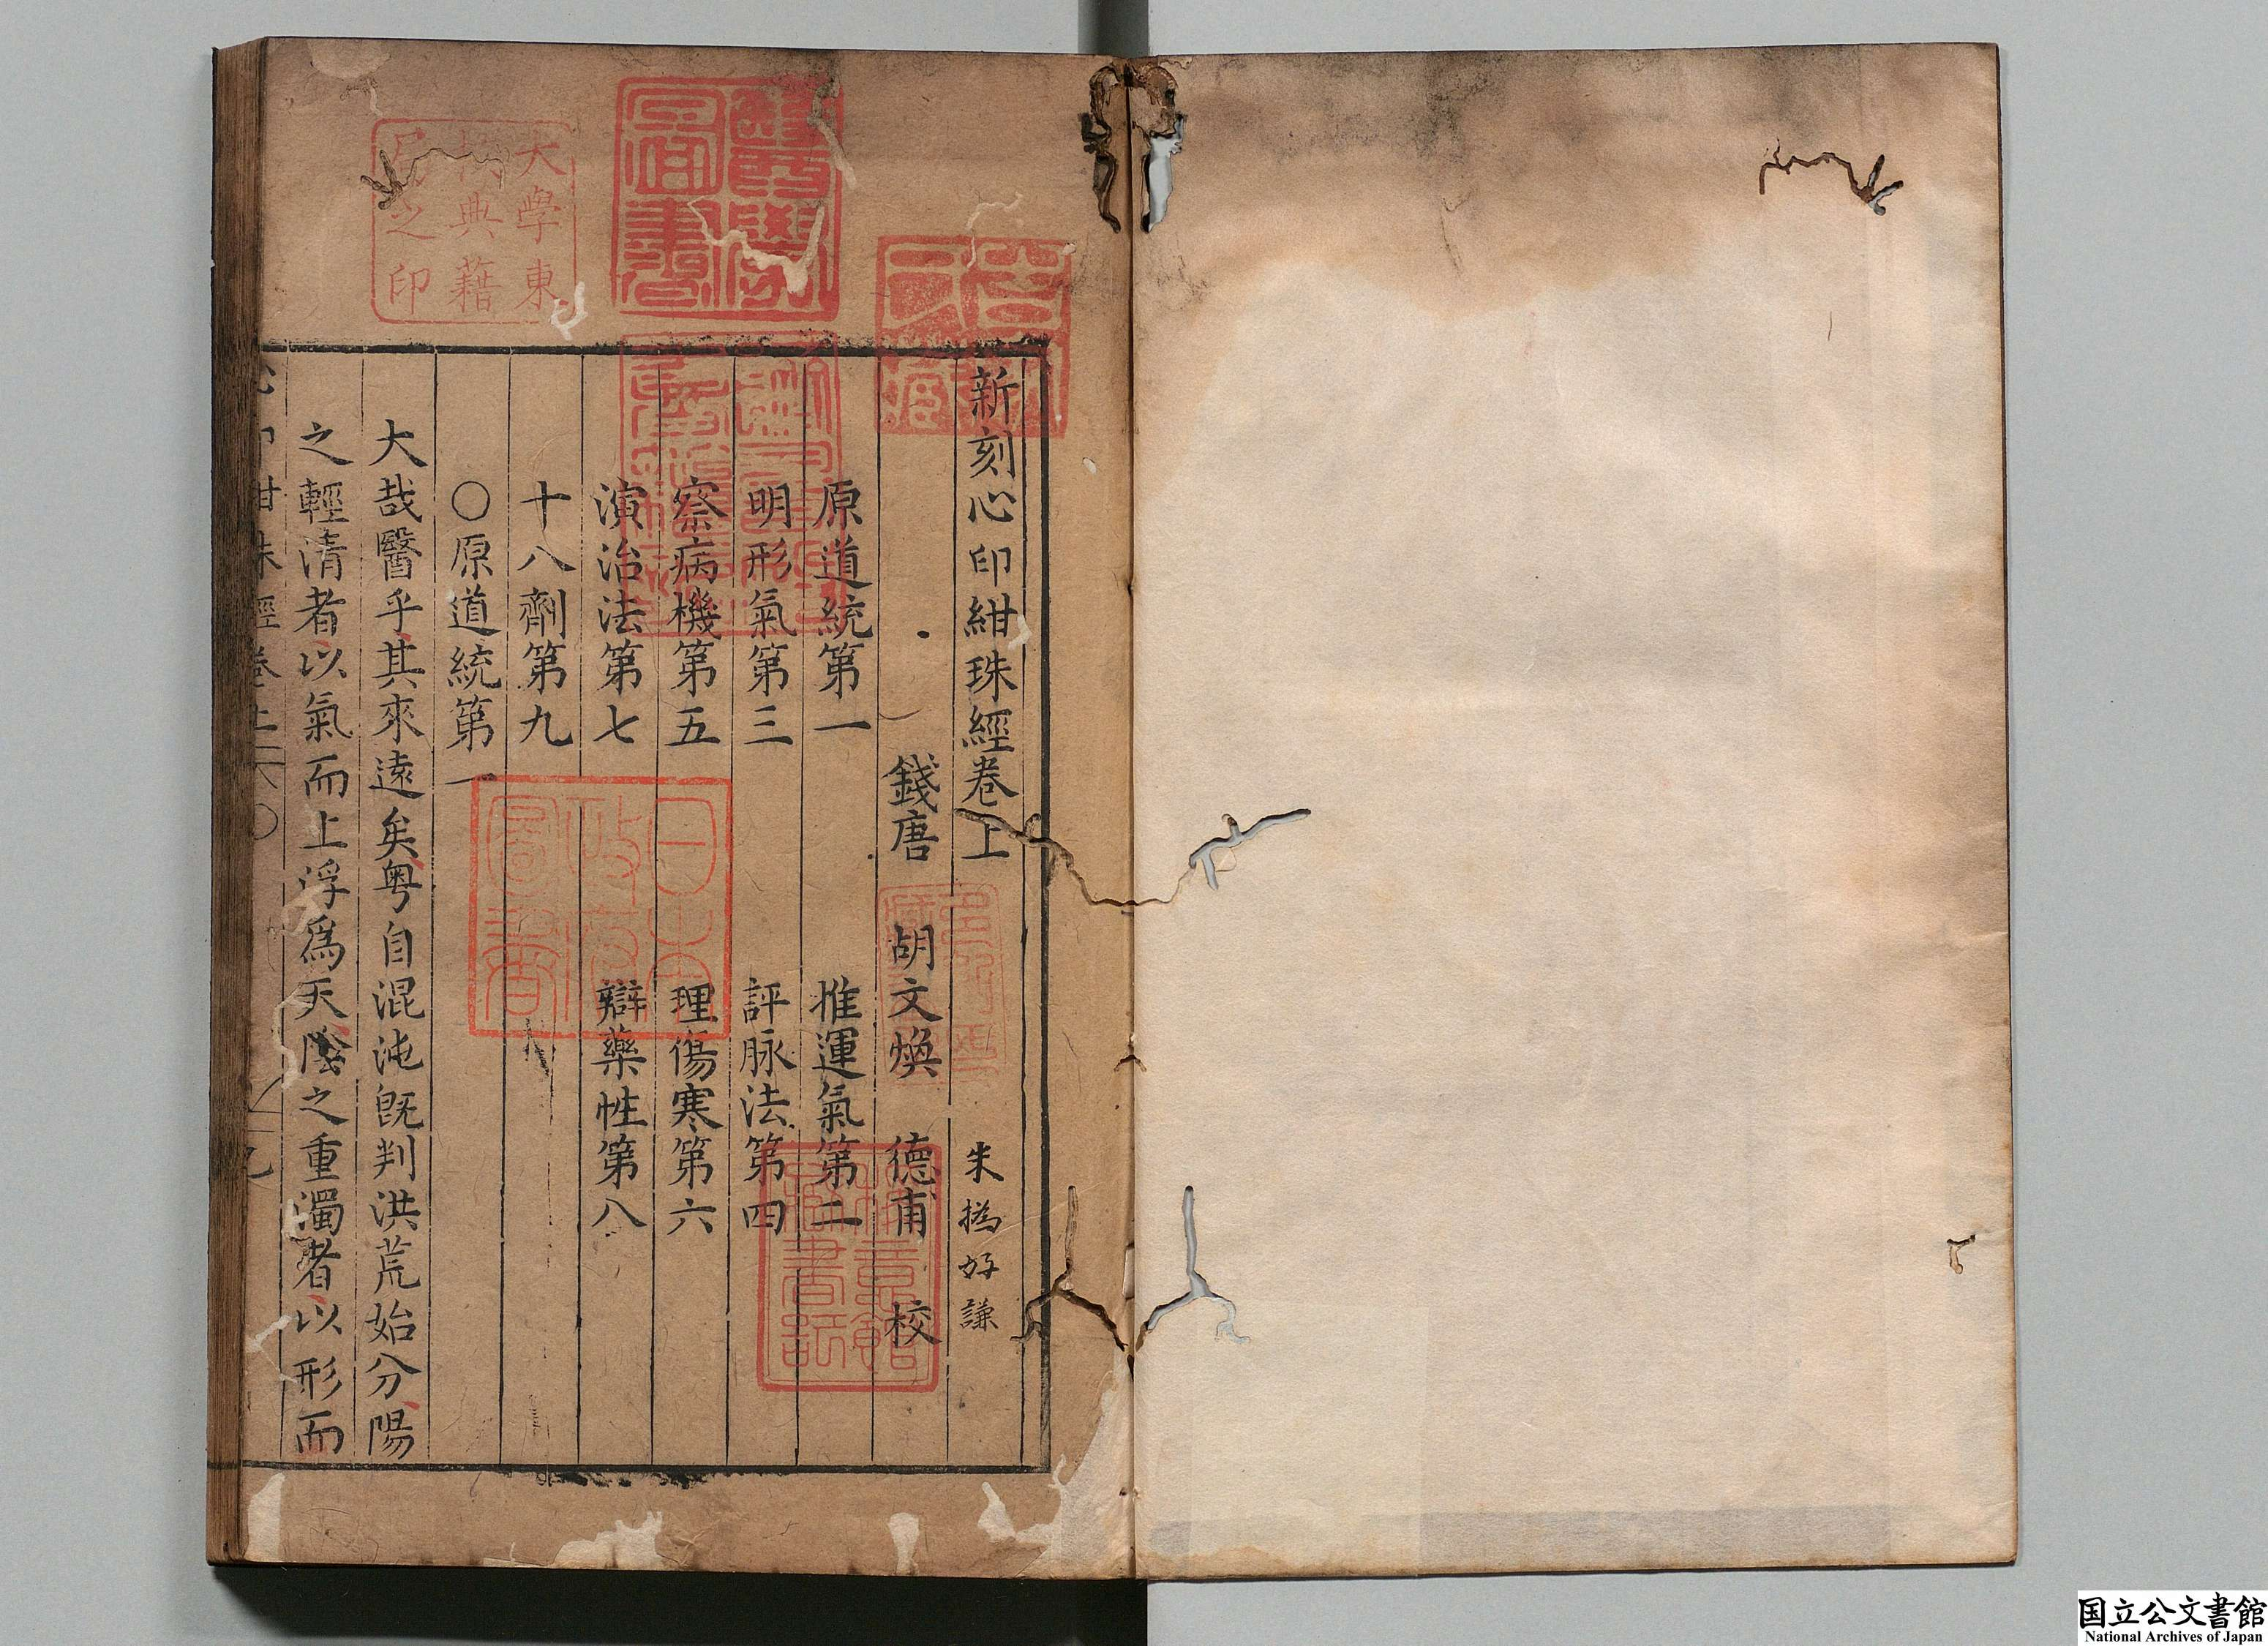 新刻心印紺珠經卷上
朱撝好謙
錢唐 胡文煥 德甫 校
原道統第一 推運氣第二
明形氣第三 評脉法第四
察病機第五 理傷寒第六
演治法第七 辯藥性第八
十八劑第九
○原道統第一
大哉醫乎其來遠矣粤自混沌旣判洪荒始分陽
之輕清者以氣而上浮爲天陰之重濁者以形而
醫學圖書
大學東
校典藉
局之印
日本
政府
圖書
国立公文書館
National Archives of Japan